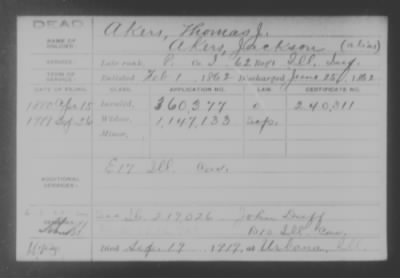 DEAD
Akers, Thomas J.
NAME OF SOLDIER:
Akers, Jackson (alias)
SERVICE: Late rank, P. Co. I, 62 Reg't Ill. Inf.
TERM OF SERVICE: Enlisted Feb 1, 1862 Discharged June 25, 1862
DATE OF FILING. CLASS. APPLICATION NO. LAW. CERTIFICATE NO.
1880 Apr 15 Invalid, 360,377 240,311
1917 Sep 26 Widow, 1,147,133
Minor,
E 17 Ill. Cav.
ADDITIONAL SERVICES:
217026 John Duff
Ill. Cav.
Died Sep. 17, 1917, at Urbana, Ill.